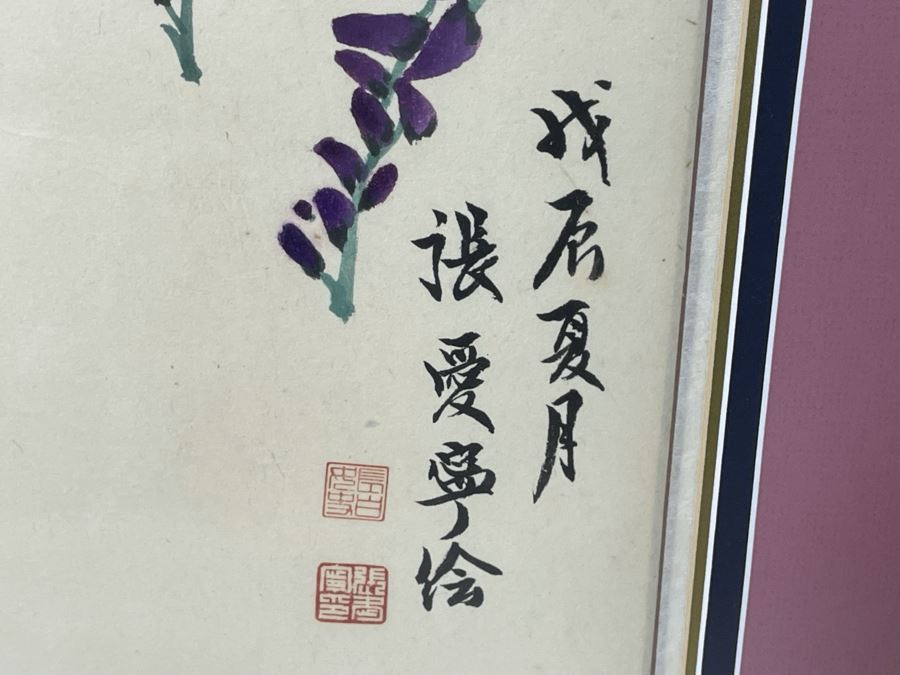 戊辰夏月
張愛寧绘